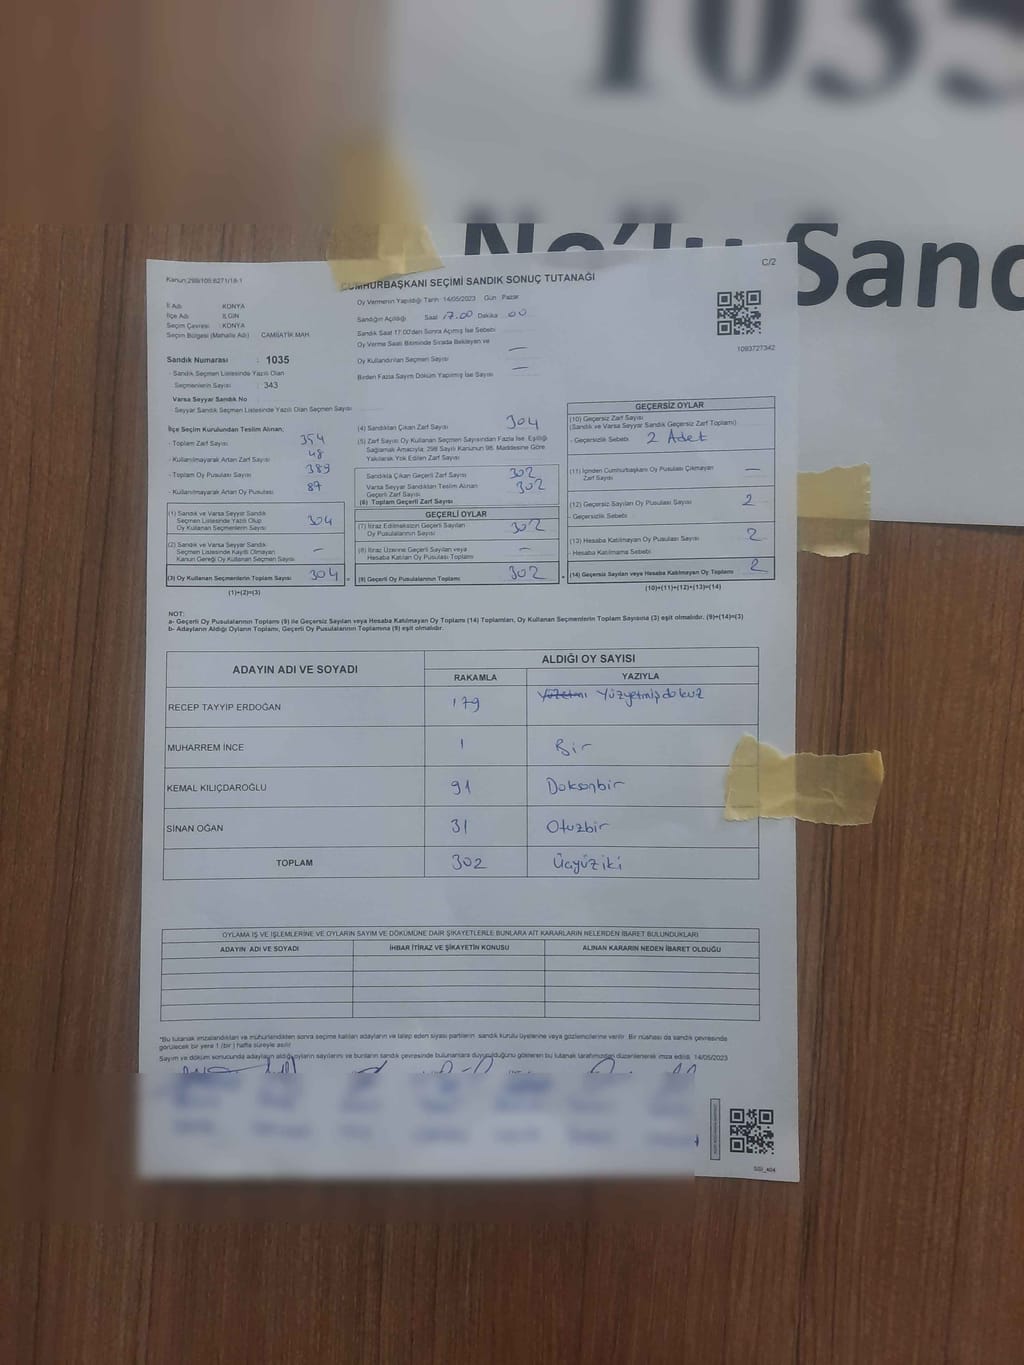 1035
No'lu Sand
C/2
Kanun:298/105 6271/18-1
CUMHURBAŞKANI SEÇİMİ SANDIK SONUÇ TUTANAĞI
İl Adı : KONYA
İlçe Adı : ILGIN
Seçim Çevresi : KONYA
Seçim Bölgesi (Mahalle Adı) CAMİİATİK MAH.
Sandık Numarası : 1035
- Sandık Seçmen Listesinde Yazılı Olan
Seçmenlerin Sayısı : 343
Varsa Seyyar Sandık No
- Seyyar Sandık Seçmen Listesinde Yazılı Olan Seçmen Sayısı
Oy Vermenin Yapıldığı Tarih 14/05/2023 Gün Pazar
Sandığın Açıldığı Saat 17.00 Dakika 00
Sandık Saat 17.00'den Sonra Açılmış İse Sebebi
Oy Verme Saati Bitiminde Sırada Bekleyen ve —
Oy Kullandırılan Seçmen Sayısı —
Birden Fazla Sayım Döküm Yapılmış İse Sayısı
1093727342
İlçe Seçim Kurulundan Teslim Alınan;
- Toplam Zarf Sayısı 354
- Kullanılmayarak Artan Zarf Sayısı 48
- Toplam Oy Pusulası Sayısı 389
- Kullanılmayarak Artan Oy Pusulası 87
(1) Sandık ve Varsa Seyyar Sandık
Seçmen Listesinde Yazılı Olup
Oy Kullanan Seçmenlerin Sayısı 304
(2) Sandık ve Varsa Seyyar Sandık
Seçmen Listesinde Kayıtlı Olmayan
Kanun Gereği Oy Kullanan Seçmen Sayısı —
(3) Oy Kullanan Seçmenlerin Toplam Sayısı 304
(1)+(2)=(3)
(4) Sandıktan Çıkan Zarf Sayısı 304
(5) Zarf Sayısı Oy Kullanan Seçmen Sayısından Fazla İse, Eşitliği
Sağlamak Amacıyla; 298 Sayılı Kanunun 98. Maddesine Göre
Yakılarak Yok Edilen Zarf Sayısı
Sandıkta Çıkan Geçerli Zarf Sayısı 302
Varsa Seyyar Sandıktan Teslim Alınan
Geçerli Zarf Sayısı 302
(6) Toplam Geçerli Zarf Sayısı
GEÇERLİ OYLAR
(7) İtiraz Edilmeksizin Geçerli Sayılan
Oy Pusulasının Sayısı 302
(8) İtiraz Üzerine Geçerli Sayılan veya
Hesaba Katılan Oy Pusulası Toplamı —
(9) Geçerli Oy Pusulalarının Toplamı 302
GEÇERSİZ OYLAR
(10) Geçersiz Zarf Sayısı
(Sandık ve Varsa Seyyar Sandık Geçersiz Zarf Toplamı)
- Geçersizlik Sebebi 2 Adet
(11) İçinden Cumhurbaşkanı Oy Pusulası Çıkmayan
Zarf Sayısı —
(12) Geçersiz Sayılan Oy Pusulası Sayısı 2
- Geçersizlik Sebebi
(13) Hesaba Katılmayan Oy Pusulası Sayısı 2
- Hesaba Katılmama Sebebi
(14) Geçersiz Sayılan veya Hesaba Katılmayan Oy Toplamı 2
(10)+(11)+(12)+(13)=(14)
NOT:
a- Geçerli Oy Pusulalarının Toplamı (9) ile Geçersiz Sayılan veya Hesaba Katılmayan Oy Toplamı (14) Toplamları, Oy Kullanan Seçmenlerin Toplam Sayısına (3) eşit olmalıdır. (9)+(14)=(3)
b- Adayların Aldığı Oyların Toplamı, Geçerli Oy Pusulalarının Toplamına (9) eşit olmalıdır.
ADAYIN ADI VE SOYADI
ALDIĞI OY SAYISI
RAKAMLA YAZIYLA
RECEP TAYYİP ERDOĞAN 179 Yüzyetmişdokuz
MUHARREM İNCE 1 Bir
KEMAL KILIÇDAROĞLU 91 Doksanbir
SİNAN OĞAN 31 Otuzbir
TOPLAM 302 Üçyüziki
OYLAMA İŞ VE İŞLEMLERİNE VE OYLARIN SAYIM VE DÖKÜMÜNE DAİR ŞİKAYETLERLE BUNLARA AİT KARARLARIN NELERDEN İBARET BULUNDUKLARI
ADAYIN ADI VE SOYADI İHBAR İTİRAZ VE ŞİKAYETİN KONUSU ALINAN KARARIN NEDEN İBARET OLDUĞU
*Bu tutanak imzalandıktan ve mühürlendikten sonra seçime katılan adayların ve talep eden siyasi partilerin sandık kurulu üyelerine veya gözlemcilerine verilir. Bir nüshası da sandık çevresinde
görülecek bir yere 1 (bir) hafta süreyle asılır
Sayım ve döküm sonucunda adayların aldığı oyların sayılarını ve bunların sandık çevresinde bulunanlara duyurulduğunu gösteren bu tutanak tarafımızdan düzenlenerek imza edildi. 14/05/2023
SSI_404